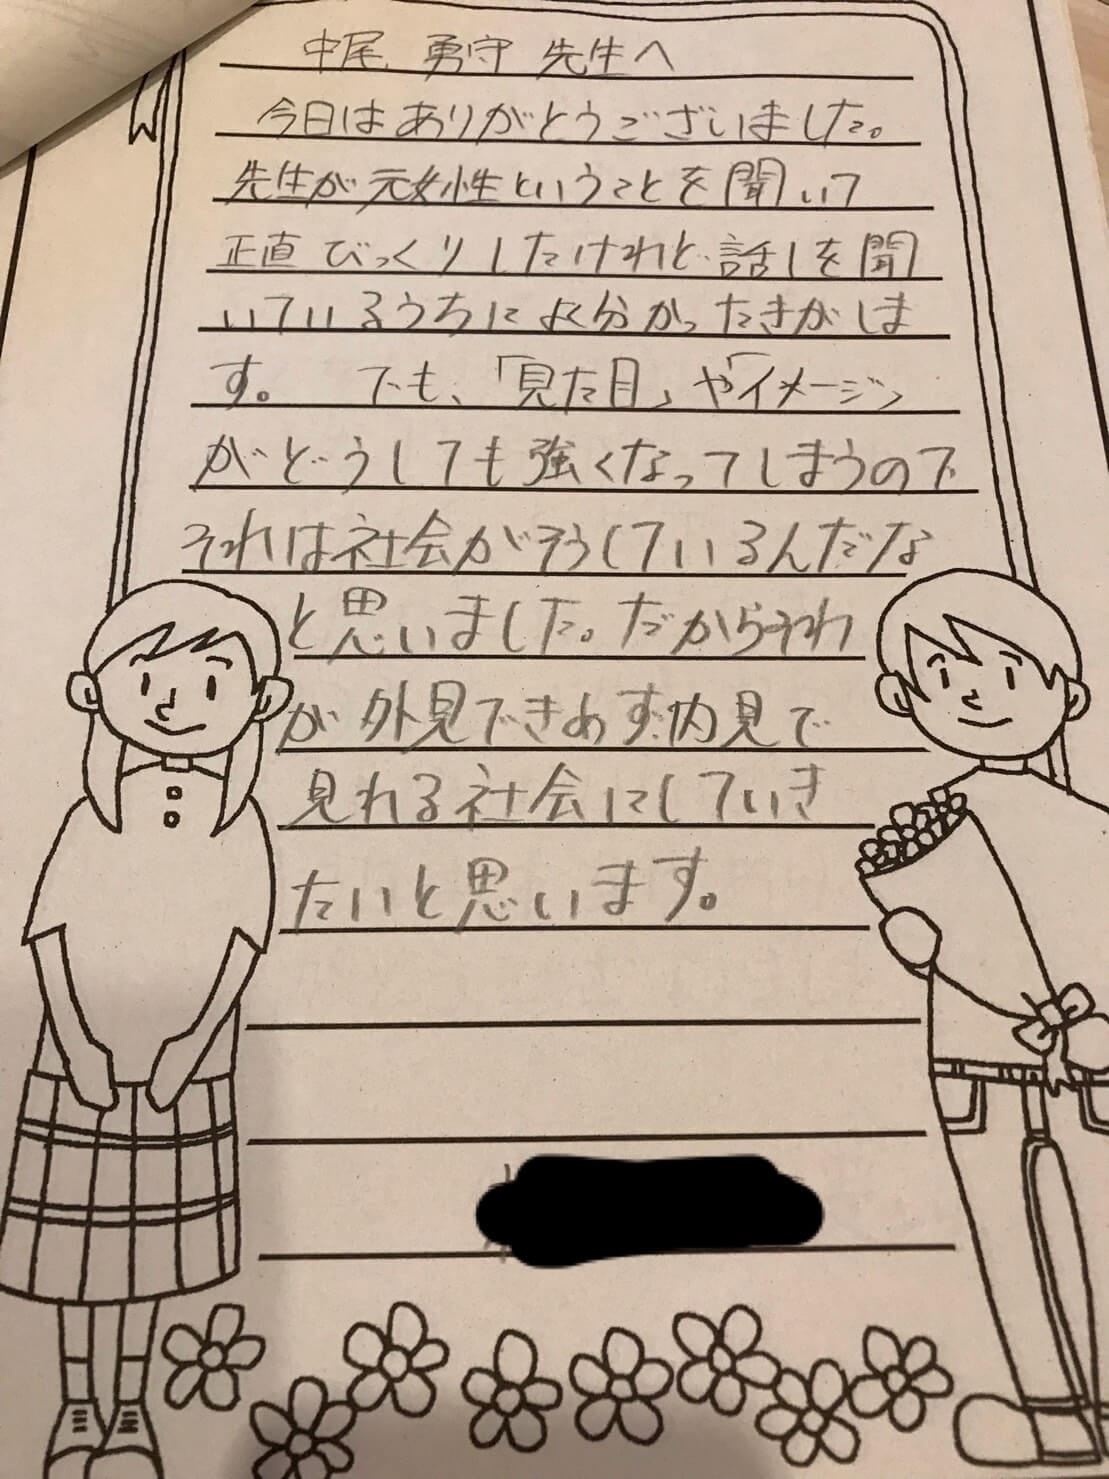 中尾 勇守 先生へ
今日はありがとうございました。
先生が元女性ということを聞いて
正直びっくりしたけれど話しを聞
いているうちによく分かったきがしま
す。 でも、「見た目」や「イメージ」
がどうしても強くなってしまうので
それは社会がそうしているんだな
と思いました。だからそれ
が外見できめず内見で
見れる社会にしていき
たいと思います。